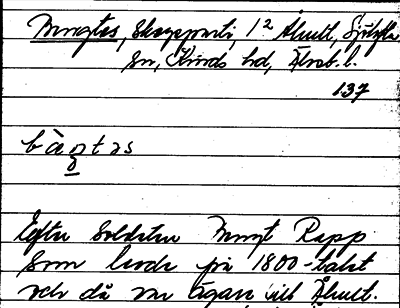 Bengtas, Skogsparti, 1² Älmtl, Sjötofta
sn, Kinds hd, Älvsb. l.
137
bàŋtas
Efter Soldaten Bengt Rapp
som levde på 1800-talet
och då var ägare till Älmtl.